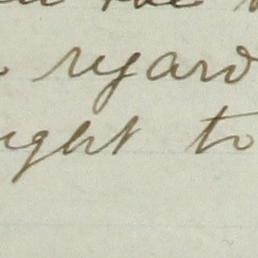 the
regard
ught to